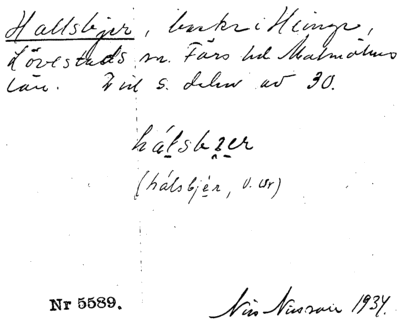 Hallsbjer, backe i Heinge,
Lövestads sn. Färs hd Malmöhus
län. Vid s. delen av 30.
hálsbɪer
(hálsbjér, v. ur)
Nr 5589.
Nils Nilsson 1934.